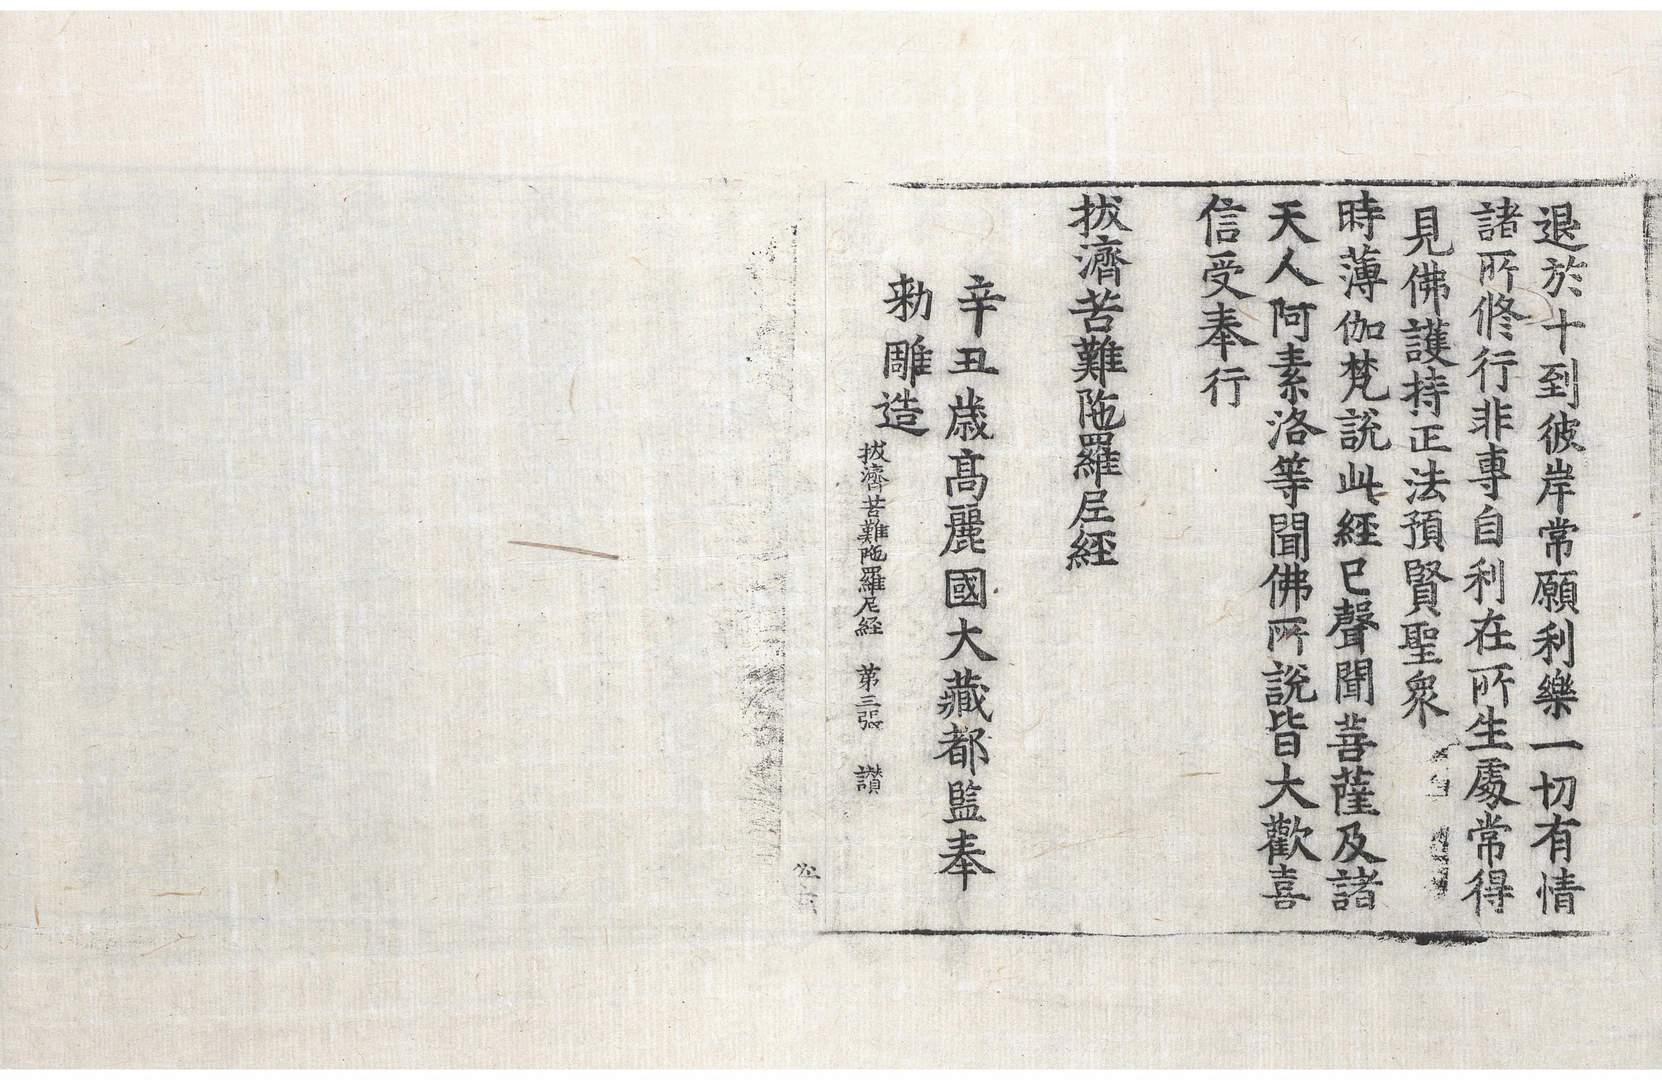 退於十到彼岸常願利樂一切有情
諸所修行非專自利在所生處常得
見佛護持正法預賢聖衆
時薄伽梵說此經已聲聞菩薩及諸
天人阿素洛等聞佛所說皆大歡喜
信受奉行
拔濟苦難陁羅尼經
辛丑歲高麗國大藏都監奉
勑雕造
拔濟苦難陁羅尼経 第三張 讃